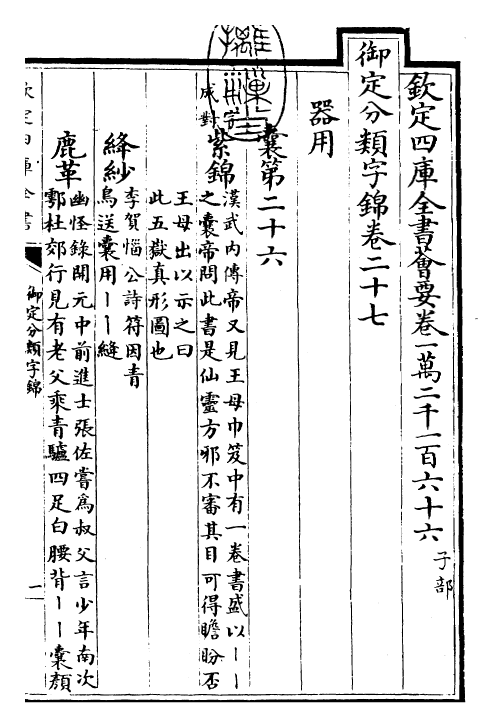 欽定四庫全書薈要卷一萬二千一百六十六 子部
御定分類字錦卷二十七
器用
囊第二十六
二字成對
紫錦 漢武内傳帝又見王母巾笈中有一卷書盛以丨丨
之囊帝問此書是仙靈方邪不審其目可得瞻盼否
王母出以示之曰
此五嶽真形圖也
絳紗 李賀惱公詩符因青
鳥送囊用丨丨縫
鹿革 幽怪錄開元中前進士張佐嘗為叔父言少年南次
鄠杜郊行見有老父乘青驢四足白腰背丨丨囊顏
欽定四庫全書
御定分類字錦
一